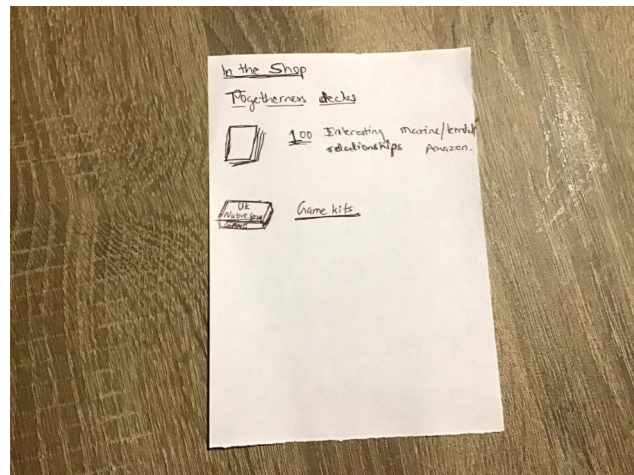 In the Shop
Togetherness decks
100 Interesting marine/
relationships Amazon.
UK
Native
GAME
Game kits.